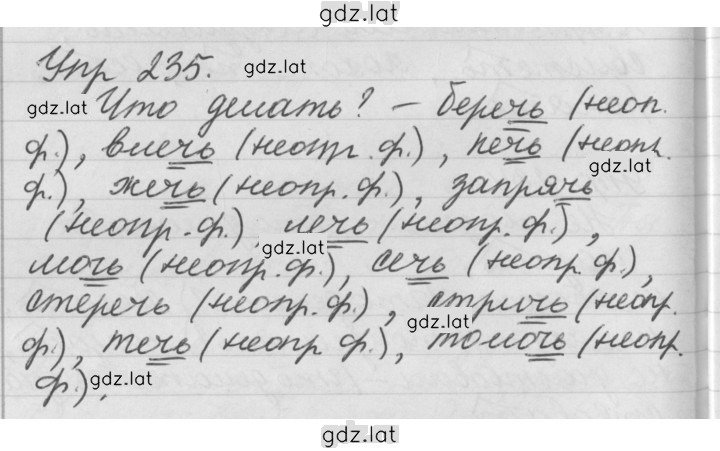 gdz.lat
Упр 235. gdz.lat
gdz.lat Что делать? – беречь (неоп.
ф.), влечь (неопр.ф.), печь (неопр.
gdz.lat
ф.), жечь (неопр.ф.), запрячь
(неопр.ф.) лечь (неопр.ф.),
gdz.lat
мочь (неопр.ф.), сечь (неопр.ф.),
стеречь (неопр.ф.), стричь (неопр.
gdz.lat
ф.), течь (неопр ф.), толочь (неопр.
ф.). gdz.lat
gdz.lat